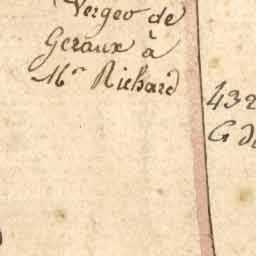 Verger de
Geraux à
Mr Richard
432
G de